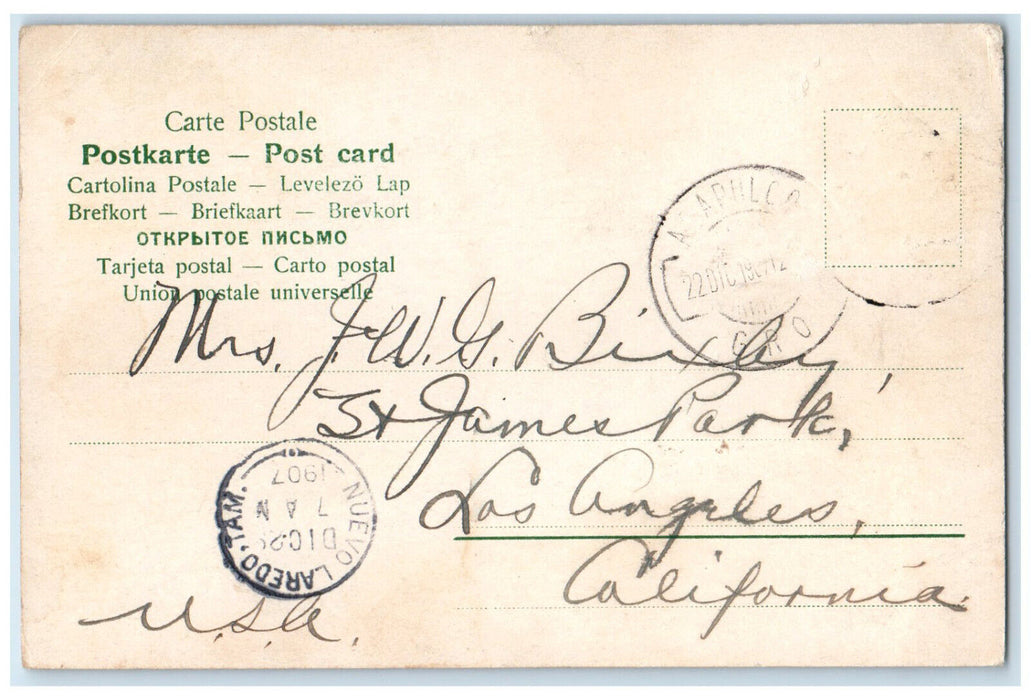 Carte Postale
Postkarte — Post card
Cartolina Postale — Levelező Lap
Brefkort — Briefkaart — Brevkort
ОТКРЫТОЕ ПИСЬМО
Tarjeta postal — Carto postal
Union postale universelle
ACAPULCO
22 DIC 1907
GRO
Mrs. J. W. G. Bixby,
St James Park,
Los Angeles,
California.
U.S.A.
NUEVO LAREDO, TAM.
DIC 28
7 A M
1907